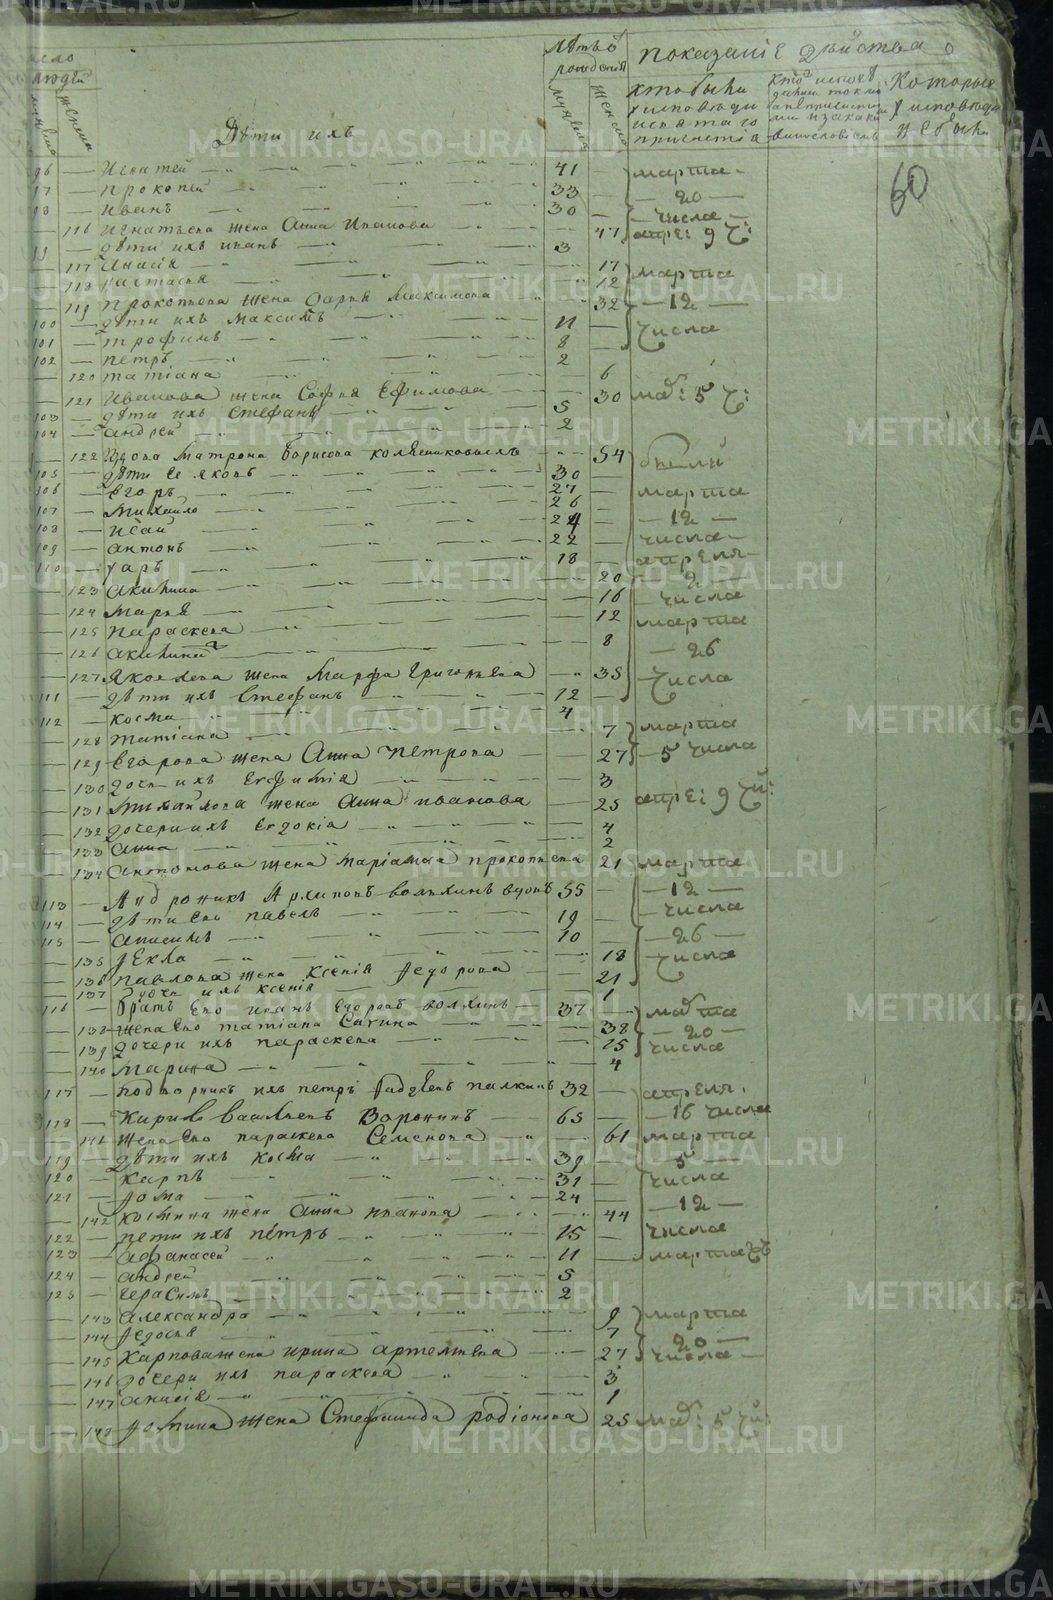 число людей
мужеска
женска
Дѣти ихъ
лѣтъ рождения
мужска
женска
показаніе действа
кто были у исповеди и святаго причастіа
кто исповеданы токмо а не причасти
которые у исповеди не были
60
96 — Игнатей — 41 — марта
97 — прокопей — 33 — 20 —
98 — иванъ — 30 — числа
— 116 игнатьева жена Анна Иванова — 47 апре: 9 ч:
99 — дѣти ихъ иванъ — 3
— 117 — 17 марта
— 118 настасия — 12
— 119 прокопьева жена дарья Максимова — 32 — 12 —
100 — дѣти ихъ максимъ — 11 — числа
101 — трофимъ — 8
102 — петръ — 2
— 120 татіана — 6
— 121 Иванова жена Софья Ефимова — 30 мар: 5 ч:
103 — дѣти ихъ стефанъ — 5
104 — андрей — 2
— 122 вдова Матрона борисова — 54
105 — дѣти ее яковъ — 30
106 — егоръ — 27 — марта
107 — михайло — 26
108 — исай — 24 — 12 —
109 — антонъ — 22 — числа
110 — уаръ — 18 — апреля
— 123 акилина — 20
— 124 марья — 16 числа
— 125 параскева — 12 марта
— 126 акилина — 8 — 26
— 127 яковлева жена Марфа григорьева — 35 числа
111 — дѣти ихъ стефанъ — 12
112 — косма — 4
— 128 татіана — 7 марта
— 129 егорова жена Анна петрова — 27 — 5 числа
— 130 дочь ихъ евфимія — 3
— 131 михайлова жена анна иванова — 25 апре: 9 чи:
— 132 дочери ихъ евдокіа — 4
— 133 анна — 2
— 134 антонова жена маріамна прокопьева 21 марта
113 — Андроникъ Архиповъ волхинъ вдовъ 55 — 12 —
114 — дѣти его павелъ — 19 — числа
115 — анисимъ — 10 — 26 —
— 135 Fекла — 18 числа
— 136 павлова жена Ксенія Fедорова — 21
— 137 дочь ихъ ксенія — 1
116 — братъ его иванъ егоровъ волхинъ — 37 — марта
— 138 жена его татіана Савина — 38 — 20 —
— 139 дочери ихъ параскева — 15 числа
— 140 марина — 4
117 — подворникъ ихъ петръ палкинъ 32 — апреля
118 — Кирило васильевъ Воронинъ — 65 — 16 числа
— 141 жена его параскева Семенова — 61 марта
119 — дѣти ихъ косма — 39 — 5 —
120 — карпъ — 31 — числа
121 — Fома — 24 — 12 —
— 142 космина жена анна иванова — 44
122 — дети ихъ петръ — 15 — числа
123 — афанасей — 11 — марта
124 — андрей — 5
125 — герасимъ — 2
— 143 александра — 9 марта
— 144 Fедосья — 7 — 20 —
— 145 карпова жена ирина артемьева — 27 числа
— 146 дочери ихъ параскева — 3
— 147 анисія — 1
— 148 Fомина жена Стефанида родіонова — 25 мар: 5 чи:
METRIKI.GASO-URAL.RU